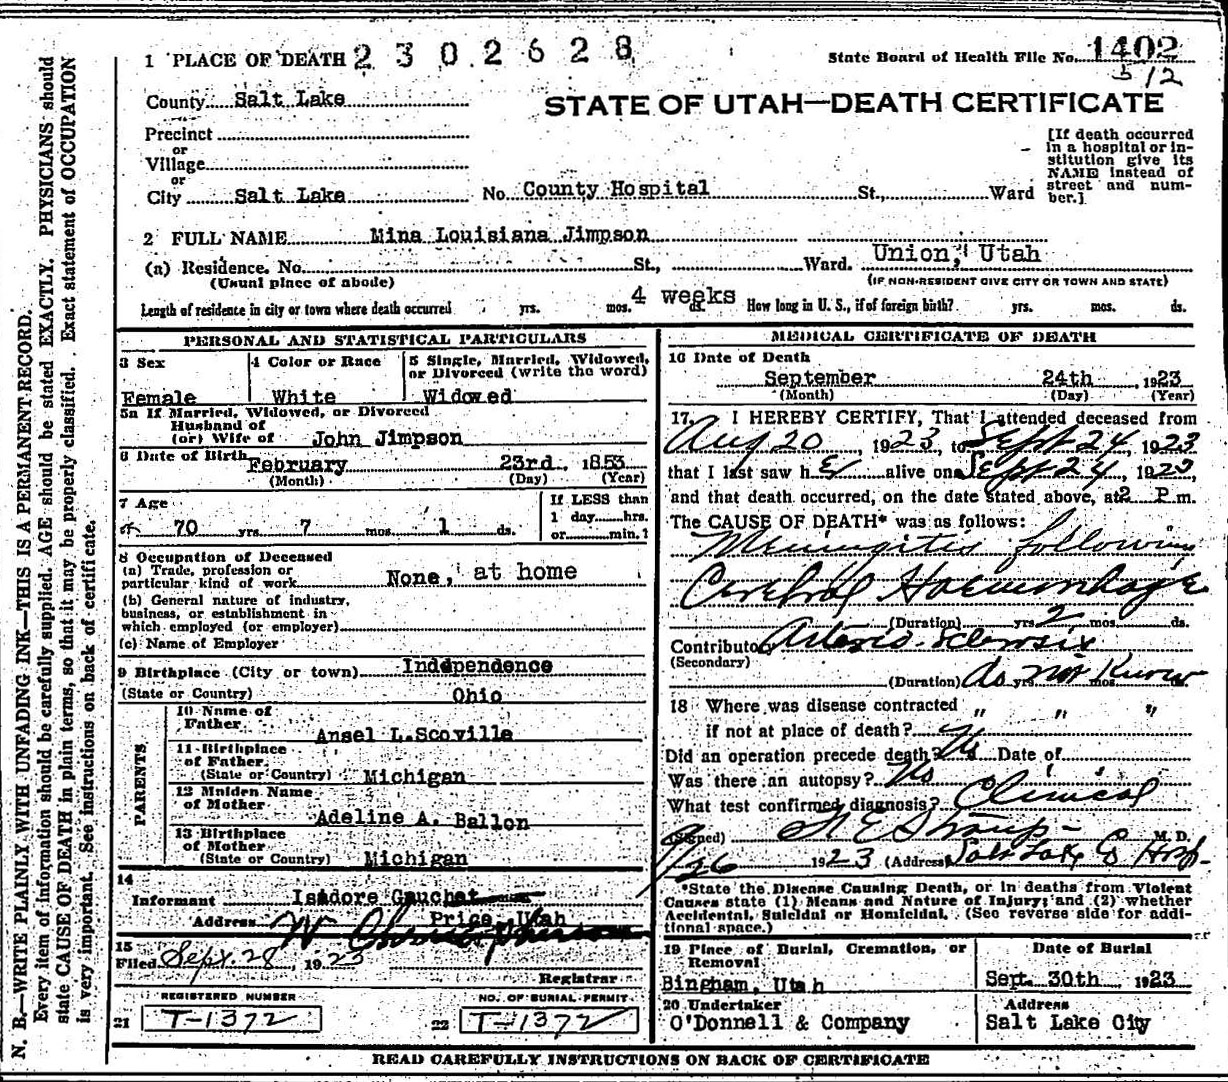 1 PLACE OF DEATH 2302628
State Board of Health File No. 1402
512
County Salt Lake
STATE OF UTAH—DEATH CERTIFICATE
Precinct
or
Village
or
City Salt Lake No. County Hospital St., Ward
[If death occurred
in a hospital or in-
stitution give its
NAME instead of
street and num-
ber.]
2 FULL NAME Mina Louisiana Jimpson
(a) Residence. No. St., Ward. Union, Utah
(Usual place of abode) (IF NON-RESIDENT GIVE CITY OR TOWN AND STATE)
Length of residence in city or town where death occurred yrs. mos. 4 weeks ds. How long in U. S., if of foreign birth? yrs. mos. ds.
PERSONAL AND STATISTICAL PARTICULARS
3 Sex
Female
4 Color or Race
White
5 Single, Married, Widowed,
or Divorced (write the word)
Widowed
5a If Married, Widowed, or Divorced
Husband of
(or) Wife of John Jimpson
6 Date of Birth February 23rd, 1853
(Month) (Day) (Year)
7 Age
70 yrs. 7 mos. 1 ds.
If LESS than
1 day hrs.
or min.?
8 Occupation of Deceased
(a) Trade, profession or
particular kind of work None, at home
(b) General nature of industry,
business, or establishment in
which employed (or employer)
(c) Name of Employer
9 Birthplace (City or town) Independence
(State or Country) Ohio
PARENTS
10 Name of
Father Ansel L. Scoville
11 Birthplace
of Father
(State or Country) Michigan
12 Maiden Name
of Mother Adeline A. Ballon
13 Birthplace
of Mother
(State or Country) Michigan
14
Informant Isadore Gauchat
Address Price, Utah
15
Filed Sept. 28, 1923
Registrar
REGISTERED NUMBER
21 T-1372
NO. OF BURIAL PERMIT
22 T-1372
MEDICAL CERTIFICATE OF DEATH
16 Date of Death
September 24th, 1923
(Month) (Day) (Year)
17. I HEREBY CERTIFY, That I attended deceased from
Aug 20, 1923, to Sept 24, 1923
that I last saw her alive on Sept 24, 1923,
and that death occurred, on the date stated above, at 2 P. m.
The CAUSE OF DEATH* was as follows:
Meningitis following
Cerebral Haemorrhage
(Duration) yrs. 2 mos. ds.
Contributory Arterio-Sclerosis
(Secondary)
(Duration) do yrs. not mos. Know ds.
18 Where was disease contracted " " "
if not at place of death?
Did an operation precede death? No Date of
Was there an autopsy? No
What test confirmed diagnosis? Clinical
(Signed) M. D.
9/26 1923 (Address) Salt Lake Co Hosp-
*State the Disease Causing Death, or in deaths from Violent
Causes state (1) Means and Nature of Injury; and (2) whether
Accidental, Suicidal or Homicidal. (See reverse side for addi-
tional space.)
19 Place of Burial, Cremation, or
Removal
Bingham, Utah
Date of Burial
Sept. 30th 1923
20 Undertaker
O'Donnell & Company
Address
Salt Lake City
READ CAREFULLY INSTRUCTIONS ON BACK OF CERTIFICATE
N. B.—WRITE PLAINLY WITH UNFADING INK—THIS IS A PERMANENT RECORD.
Every item of information should be carefully supplied. AGE should be stated EXACTLY. PHYSICIANS should
state CAUSE OF DEATH in plain terms, so that it may be properly classified. Exact statement of OCCUPATION
is very important. See instructions on back of certificate.